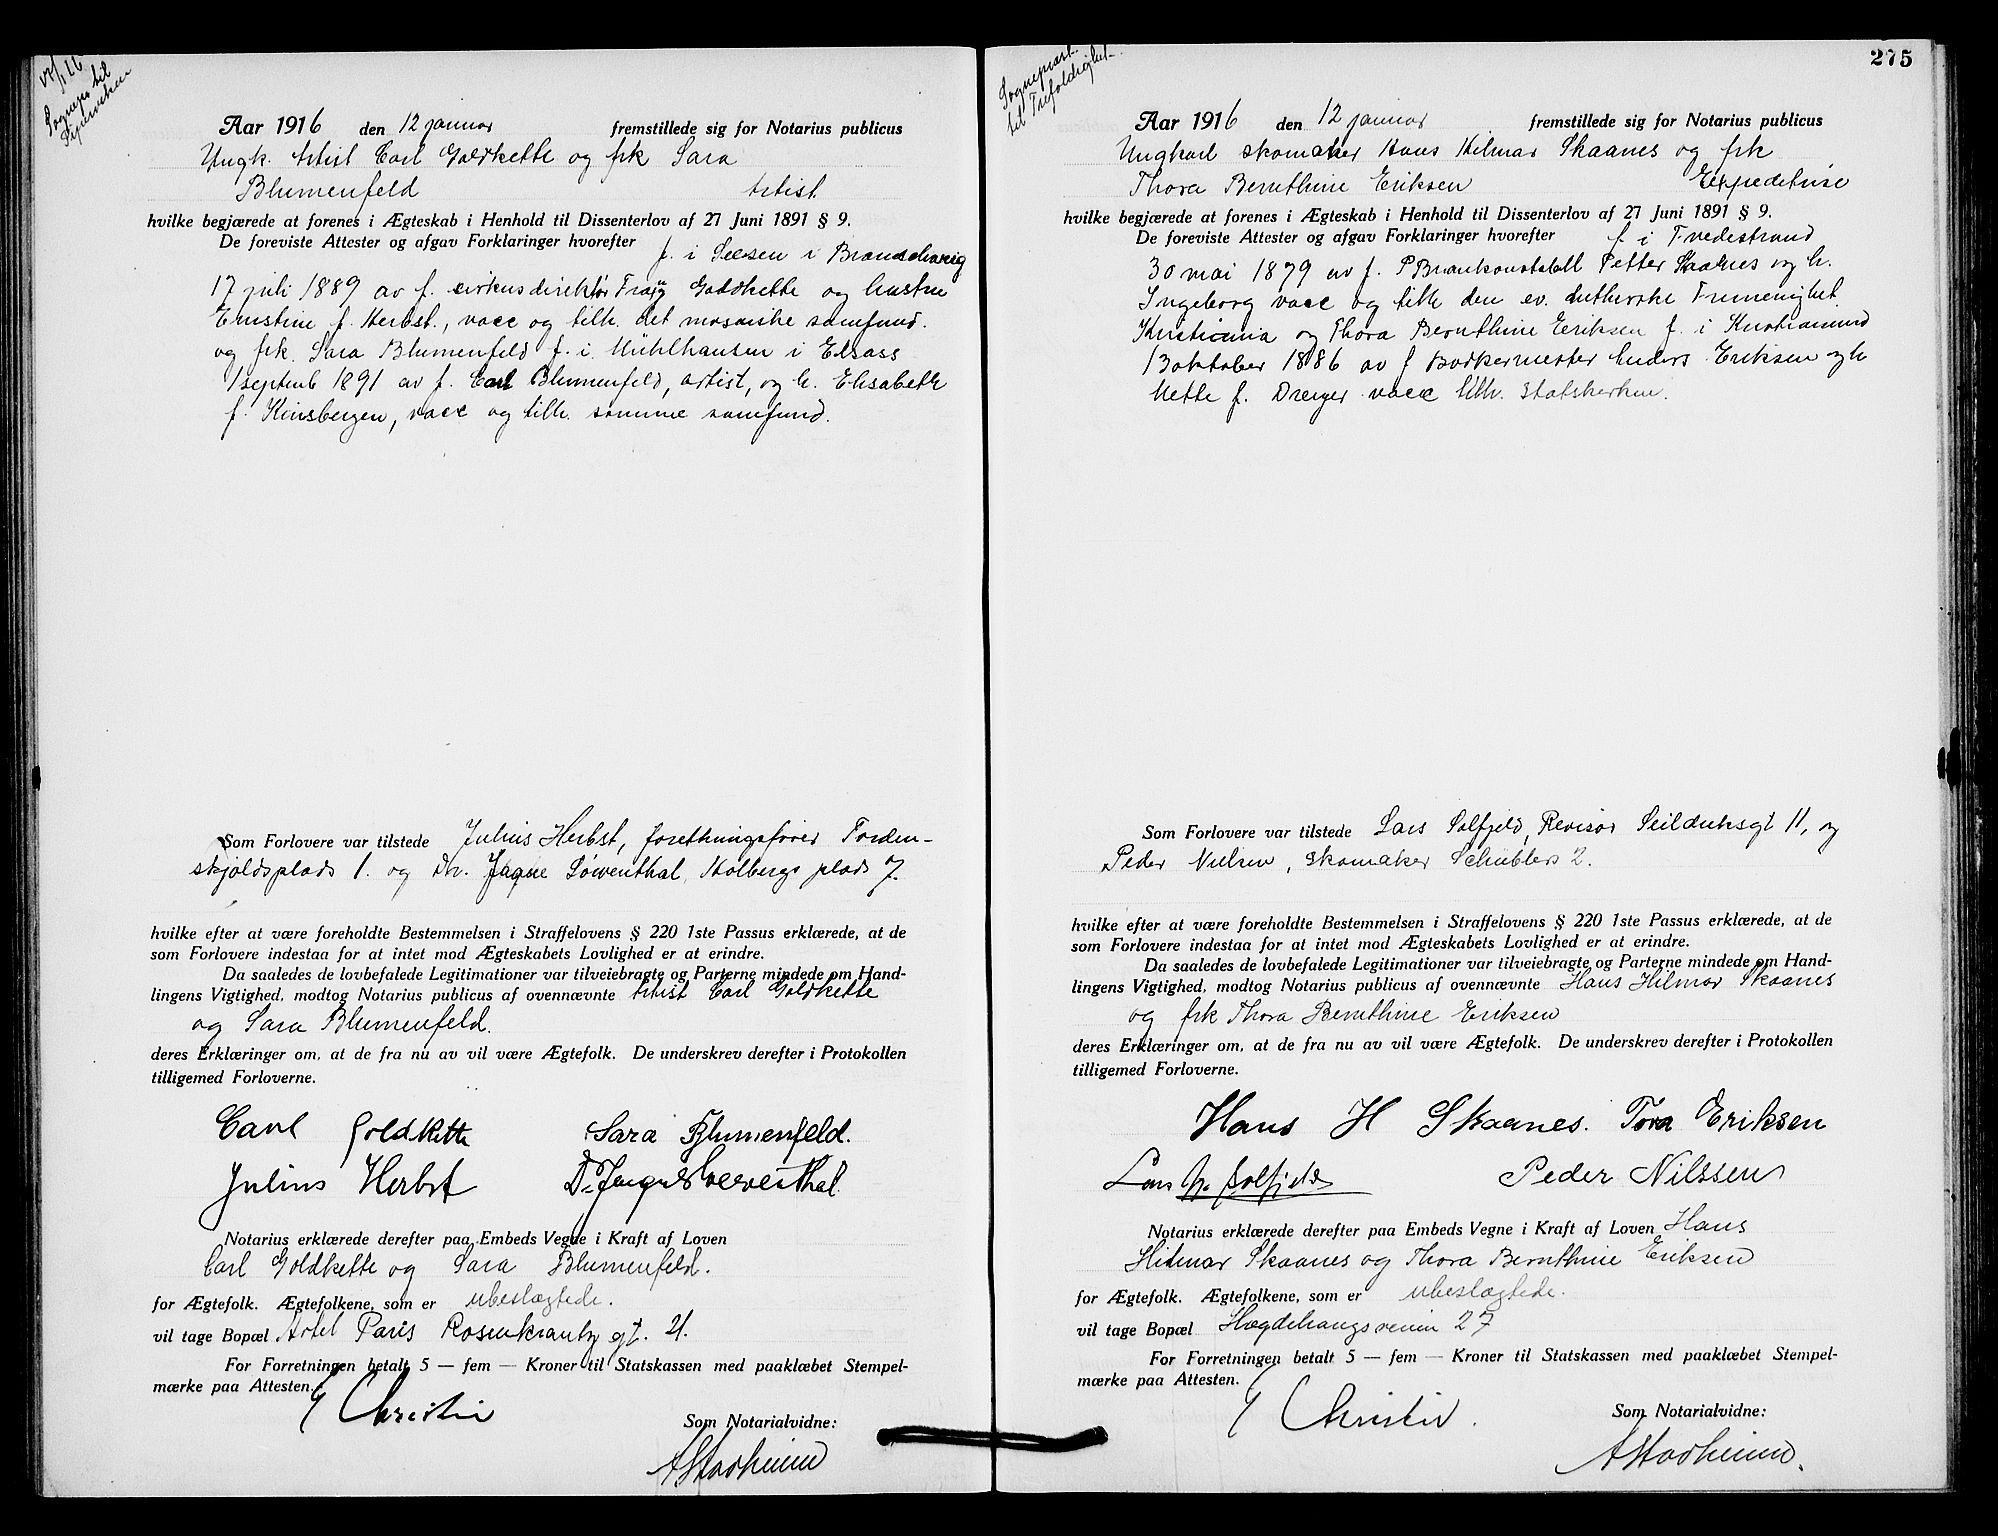 17/1 16
Sogneps til
Pipervikens
Aar 1916 den 12 januar fremstillede sig for Notarius publicus
Ungk. Artist Carl Goldkette og frk Sara
Blumenfeld Artist.
hvilke begjærede at forenes i Ægteskab i Henhold til Dissenterlov af 27 Juni 1891 § 9.
De foreviste Attester og afgav Forklaringer hvorefter f. i Seesen i Braunschweig
17 juli 1889 av f. cirkusdirektør Franz Goldkette og hustru
Ernstine f. Herbst, vacc og tilh. det mosaiske samfund.
og frk. Sara Blumenfeld f. i Mühlhausen i Elsass
1 septemb 1891 av f. Carl Blumenfeld, artist, og h. Elisabeth
f. Kinsbergen, vacc og tilh. samme samfund.
Som Forlovere var tilstede Julius Herbst, forretningsfører Torden-
skjoldsplads 1. og Dr. Jaque Løwenthal, Holbergs plads 7.
hvilke efter at være foreholdte Bestemmelsen i Straffelovens § 220 1ste Passus erklærede, at de
som Forlovere indestaa for at intet mod Ægteskabets Lovlighed er at erindre.
Da saaledes de lovbefalede Legitimationer var tilveiebragte og Parterne mindede om Hand-
lingens Vigtighed, modtog Notarius publicus af ovennævnte Artist Carl Goldkette
og Sara Blumenfeld.
deres Erklæringer om, at de fra nu av vil være Ægtefolk. De underskrev derefter i Protokollen
tilligemed Forloverne.
Carl Goldkette Sara Blumenfeld.
Julius Herbst Dr. Jaques Loewenthal.
Notarius erklærede derefter paa Embeds Vegne i Kraft af Loven
Carl Goldkette og Sara Blumenfeld.
for Ægtefolk. Ægtefolkene, som er ubeslægtede.
vil tage Bopæl Hotel Paris Rosenkrantz gt. 21.
For Forretningen betalt 5 — fem — Kroner til Statskassen med paaklæbet Stempel-
mærke paa Attesten.
Christie
Som Notarialvidne:
A Stadheim
275
Sogneprest
til Trefoldighet
Aar 1916 den 12 januar fremstillede sig for Notarius publicus
Ungkarl skomaker Hans Hilmar Skaanes og frk
Thora Bernthine Eriksen Expeditrise
hvilke begjærede at forenes i Ægteskab i Henhold til Dissenterlov af 27 Juni 1891 § 9.
De foreviste Attester og afgav Forklaringer hvorefter f. i Tvedestrand
30 mai 1879 av f. Brankonstabel Petter Skaanes og h.
Ingeborg vacc og tilh den ev. lutherske Frimenighet.
Kristiania og Thora Bernthine Eriksen f. i Kristiansund
13 oktober 1886 av f Bødkermester Anders Eriksen og h
Mette f. Dreyer vacc tilh. statskirken.
Som Forlovere var tilstede Lars Solfjeld, Revisor Seilduksgt 11, og
Peder Nielsen, skomaker Schüblers 2.
hvilke efter at være foreholdte Bestemmelsen i Straffelovens § 220 1ste Passus erklærede, at de
som Forlovere indestaa for at intet mod Ægteskabets Lovlighed er at erindre.
Da saaledes de lovbefalede Legitimationer var tilveiebragte og Parterne mindede om Hand-
lingens Vigtighed, modtog Notarius publicus af ovennævnte Hans Hilmar Skaanes
og frk Thora Bernthine Eriksen
deres Erklæringer om, at de fra nu av vil være Ægtefolk. De underskrev derefter i Protokollen
tilligemed Forloverne.
Hans H Skaanes. Tora Eriksen
Lars Solfjeld Peder Nilssen
Notarius erklærede derefter paa Embeds Vegne i Kraft af Loven Hans
Hilmar Skaanes og Thora Bernthine Eriksen
for Ægtefolk. Ægtefolkene, som er ubeslægtede.
vil tage Bopæl Hegdehaugsveien 27
For Forretningen betalt 5 — fem — Kroner til Statskassen med paaklæbet Stempel-
mærke paa Attesten.
Christie.
Som Notarialvidne:
A Stadheim.